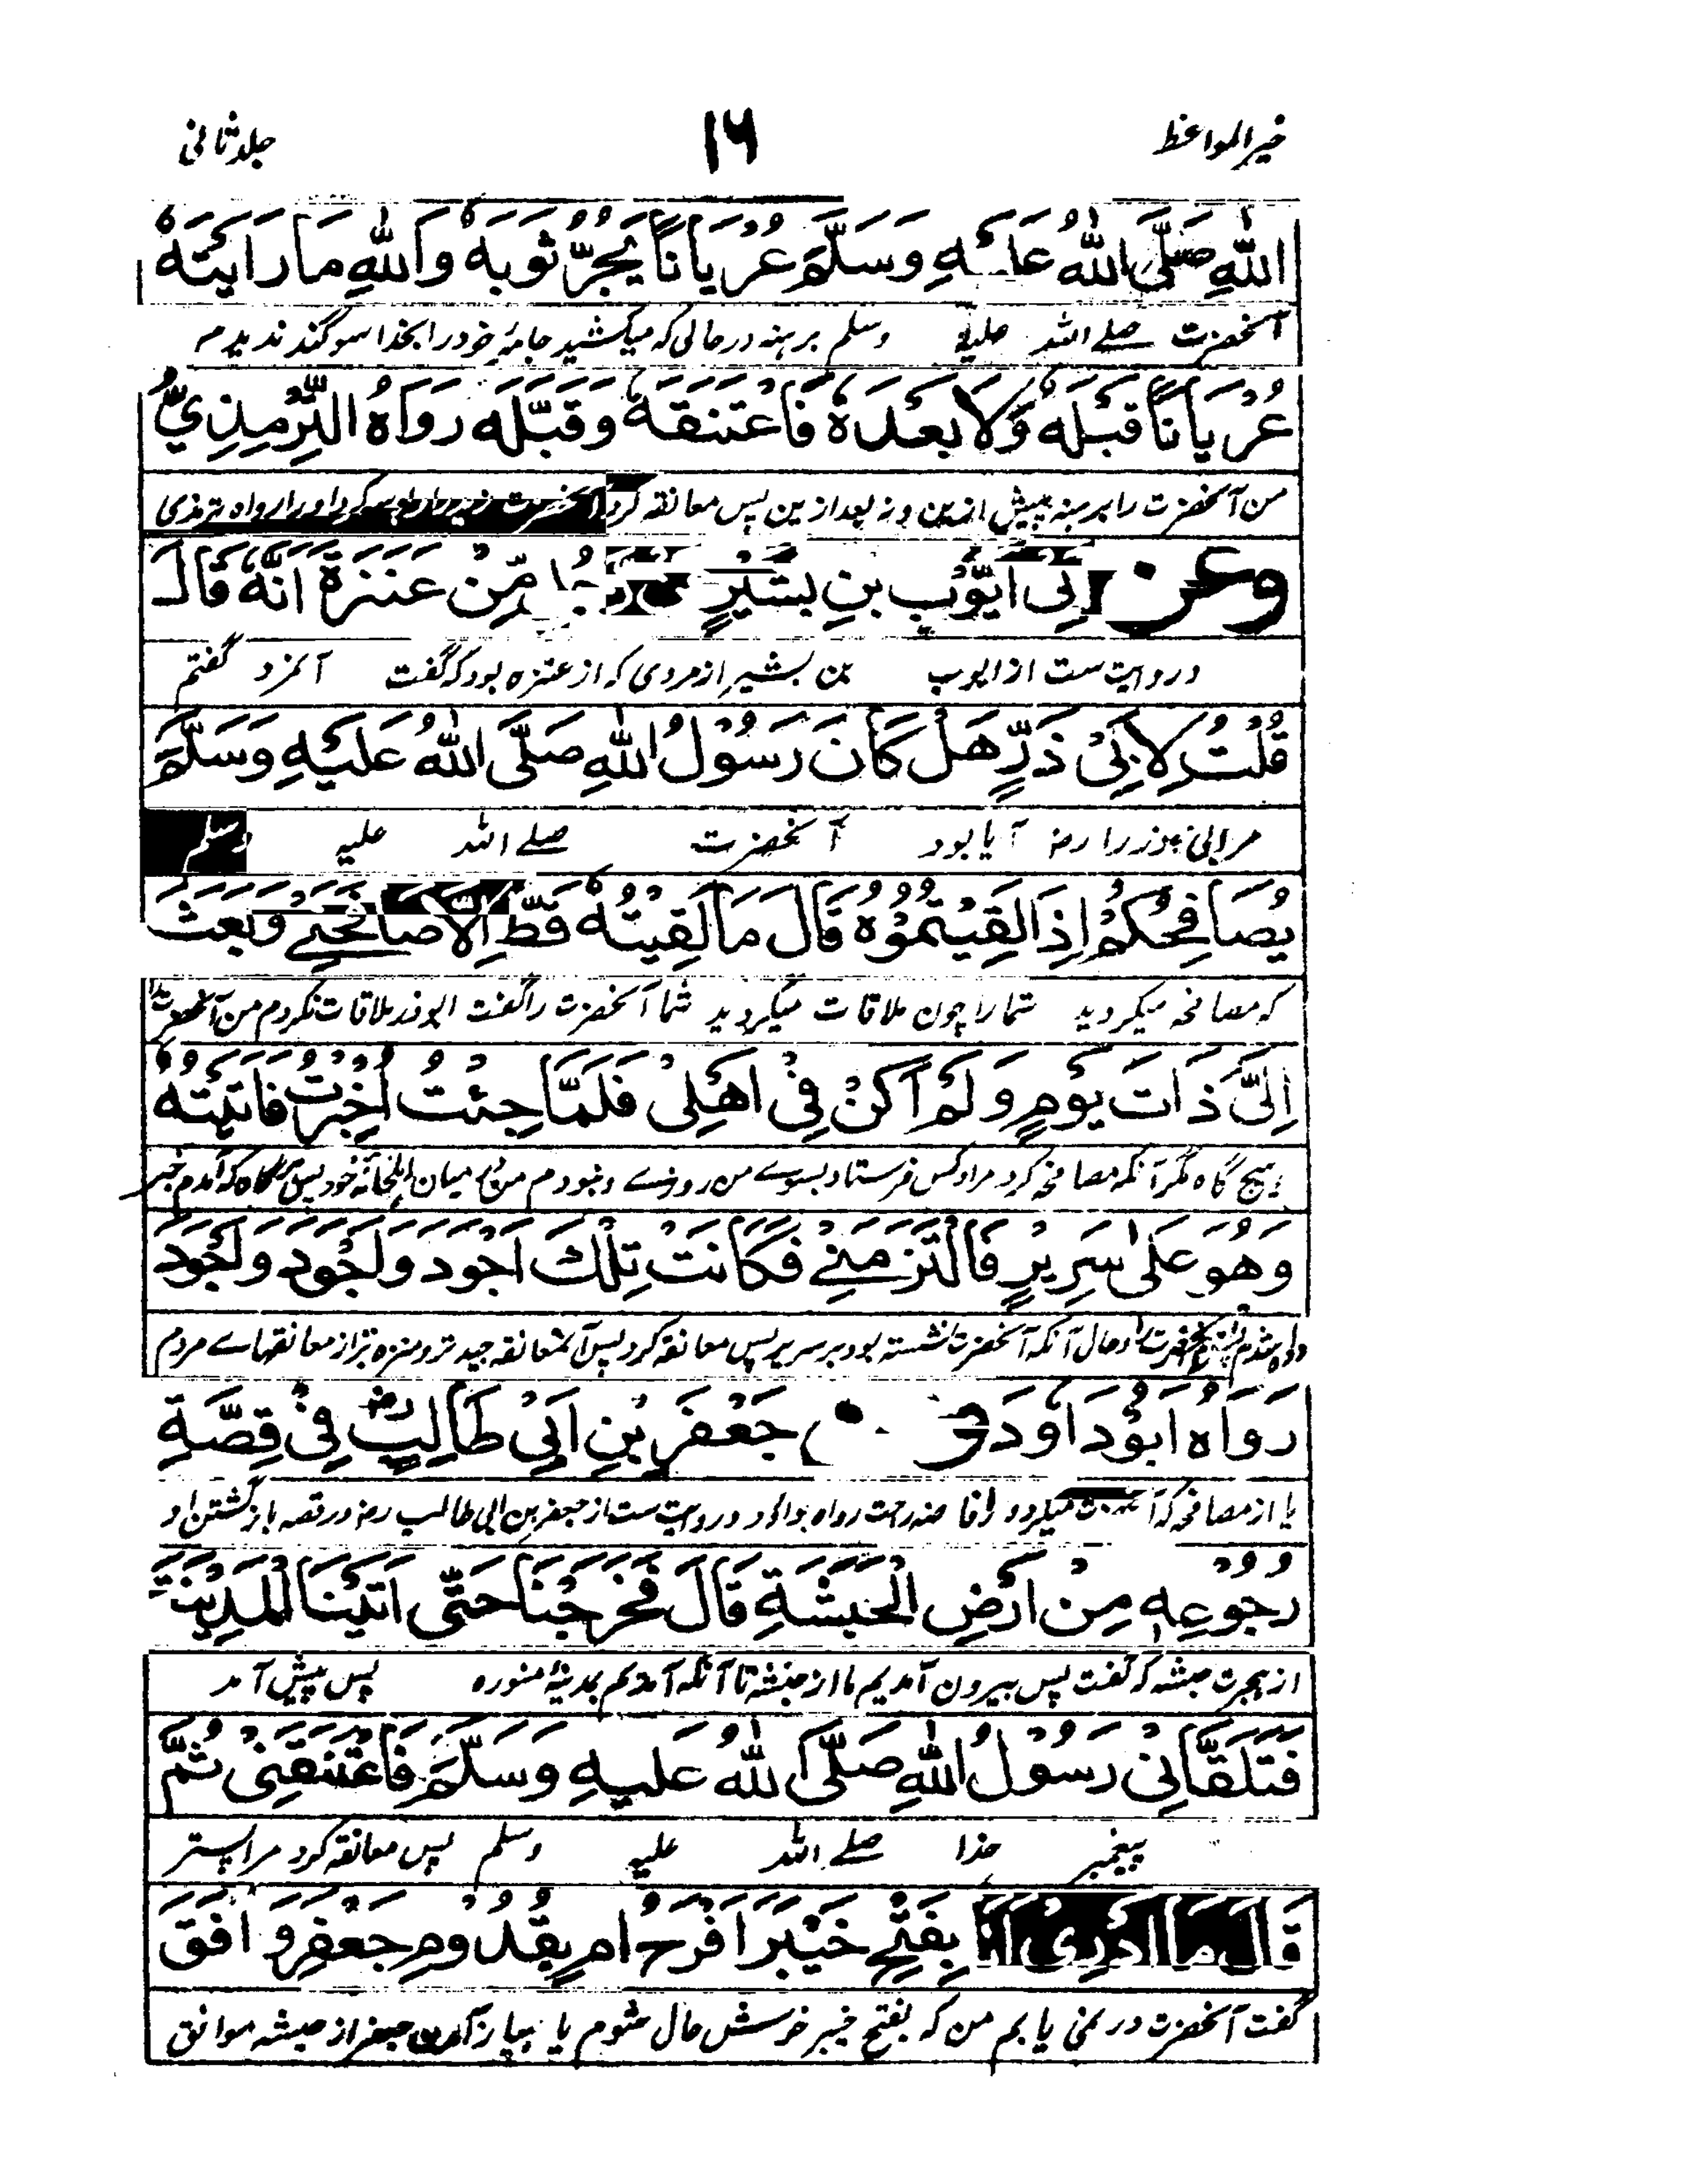 خیرالمواعظ ۱۶ جلد ثانی
اللّٰهِ صَلَّى اللّٰهُ عَلَيْهِ وَسَلَّمَ عُرْيَانًا يَجُرُّ ثَوْبَهٗ وَاللّٰهِ مَا رَاَيْتُهٗ
آنحضرت صلے اللہ علیہ وسلم برہنہ درحالی کہ میکشید جامۂ خود را بخدا سوگند ندیدم
عُرْيَانًا قَبْلَهٗ وَلَا بَعْدَهٗ فَاعْتَنَقَهٗ وَقَبَّلَهٗ رَوَاهُ التِّرْمِذِيُّ
من آنحضرت را برہنہ پیش ازین و نہ بعد ازین پس معانقہ کرد آنحضرت زید را و بوسہ کرد او را رواہ ترمذی
وعن اَبِى اَيُّوْبَ بْنِ بَشِيْرٍ مِّنْ عَنَزَةَ اَنَّهٗ قَالَ
و روایت ست از ایوب بن بشیر از مردی کہ از عنزہ بود کہ گفت آنمرد گفتم
قُلْتُ لِاَبِىْ ذَرٍّ هَلْ كَانَ رَسُوْلُ اللّٰهِ صَلَّى اللّٰهُ عَلَيْهِ وَسَلَّمَ
مر ابی ذر را رضہ آیا بود آنحضرت صلے اللہ علیہ وسلم
يُصَافِحُكُمْ اِذَا لَقِيْتُمُوْهُ قَالَ مَا لَقِيْتُهٗ قَطُّ اِلَّا صَافَحَنِيْ وَبَعَثَ
کہ مصافحہ میکردید شما را چون ملاقات میکردید شما آنحضرت را گفت ابوذر ملاقات نکردم من آنحضرت را
اِلَىَّ ذَاتَ يَوْمٍ وَلَمْ اَكُنْ فِىْ اَهْلِىْ فَلَمَّا جِئْتُ اُخْبِرْتُ فَاَتَيْتُهٗ
ہیچ گاہ مگر آنکہ مصافحہ کرد مرا و کس فرستاد بسوے من روزے و نبودم من میان اہلخانۂ خود پس ہرگاہ کہ آمدم خبر
وَهُوَ عَلٰى سَرِيْرٍ فَالْتَزَمَنِيْ فَكَانَتْ تِلْكَ اَجْوَدَ وَاَجْوَدَ وَاَجْوَدَ
حال آنکہ آنحضرت نشستہ بود بر سریر پس معانقہ کرد پس آن معانقہ جید تر و منزہ تر از معانقہاے مردم
رَوَاهُ اَبُوْدَاوٗدَ جَعْفَرِ بْنِ اَبِىْ طَالِبٍ رضہ فِىْ قِصَّةِ
یا از مصافحہ کہ میکرد رواہ و روایت ست از جعفر بن ابی طالب رضہ در قصہ بازگشتن او
رُجُوْعِهٖ مِنْ اَرْضِ الْحَبَشَةِ قَالَ فَخَرَجْنَا حَتّٰى اَتَيْنَا الْمَدِيْنَةَ
از ہجرت حبشہ کہ گفت پس بیرون آمدیم ما از حبشہ تا آنکہ آمدیم بمدینۂ منورہ پس پیش آمد
فَتَلَقَّانِىْ رَسُوْلُ اللّٰهِ صَلَّى اللّٰهُ عَلَيْهِ وَسَلَّمَ فَاعْتَنَقَنِىْ ثُمَّ
پیغمبر خدا صلے اللہ علیہ وسلم پس معانقہ کرد مرا پستر
قَالَ مَا اَدْرِىْ اَنَا بِفَتْحِ خَيْبَرَ اَفْرَحُ اَمْ بِقُدُوْمِ جَعْفَرٍ وَافَقَ
گفت آنحضرت در نمی یابم من کہ بفتح خیبر خوشحال شوم یا بباز آمدن جعفر از حبشہ موافق